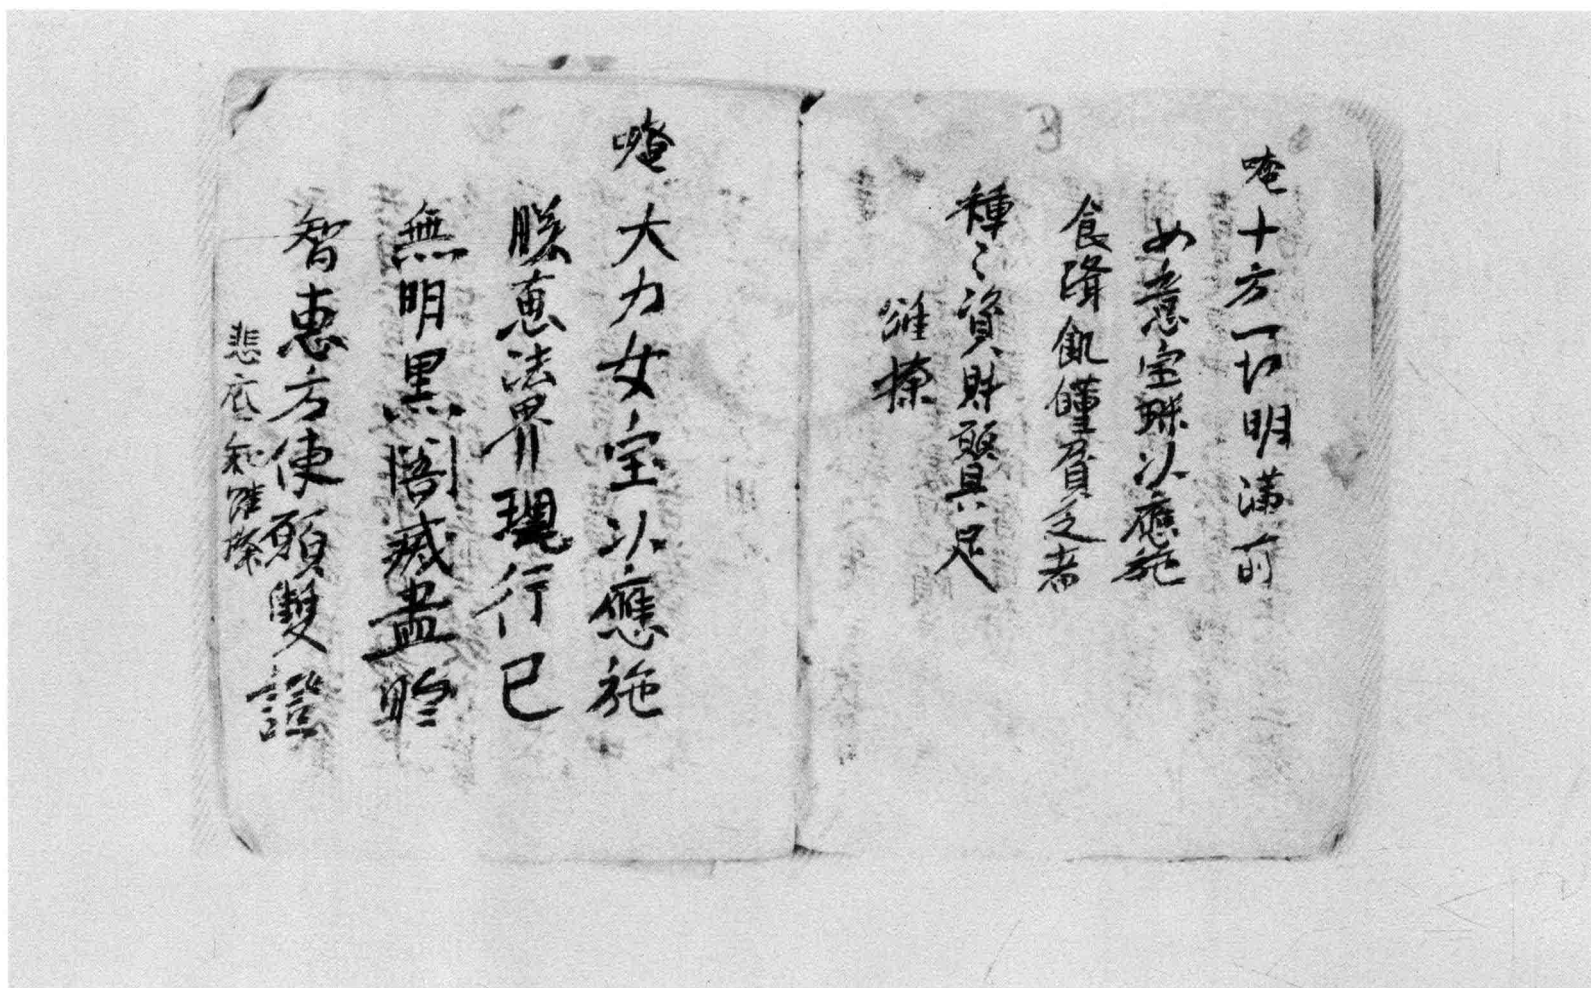 唵十方一切明满前
如意宝珠以應施
食降飢饉貧乏者
種々資財願具足
唵大力女宝以應施
勝惠法界現行已
無明黑闇滅盡
智惠方便願雙證